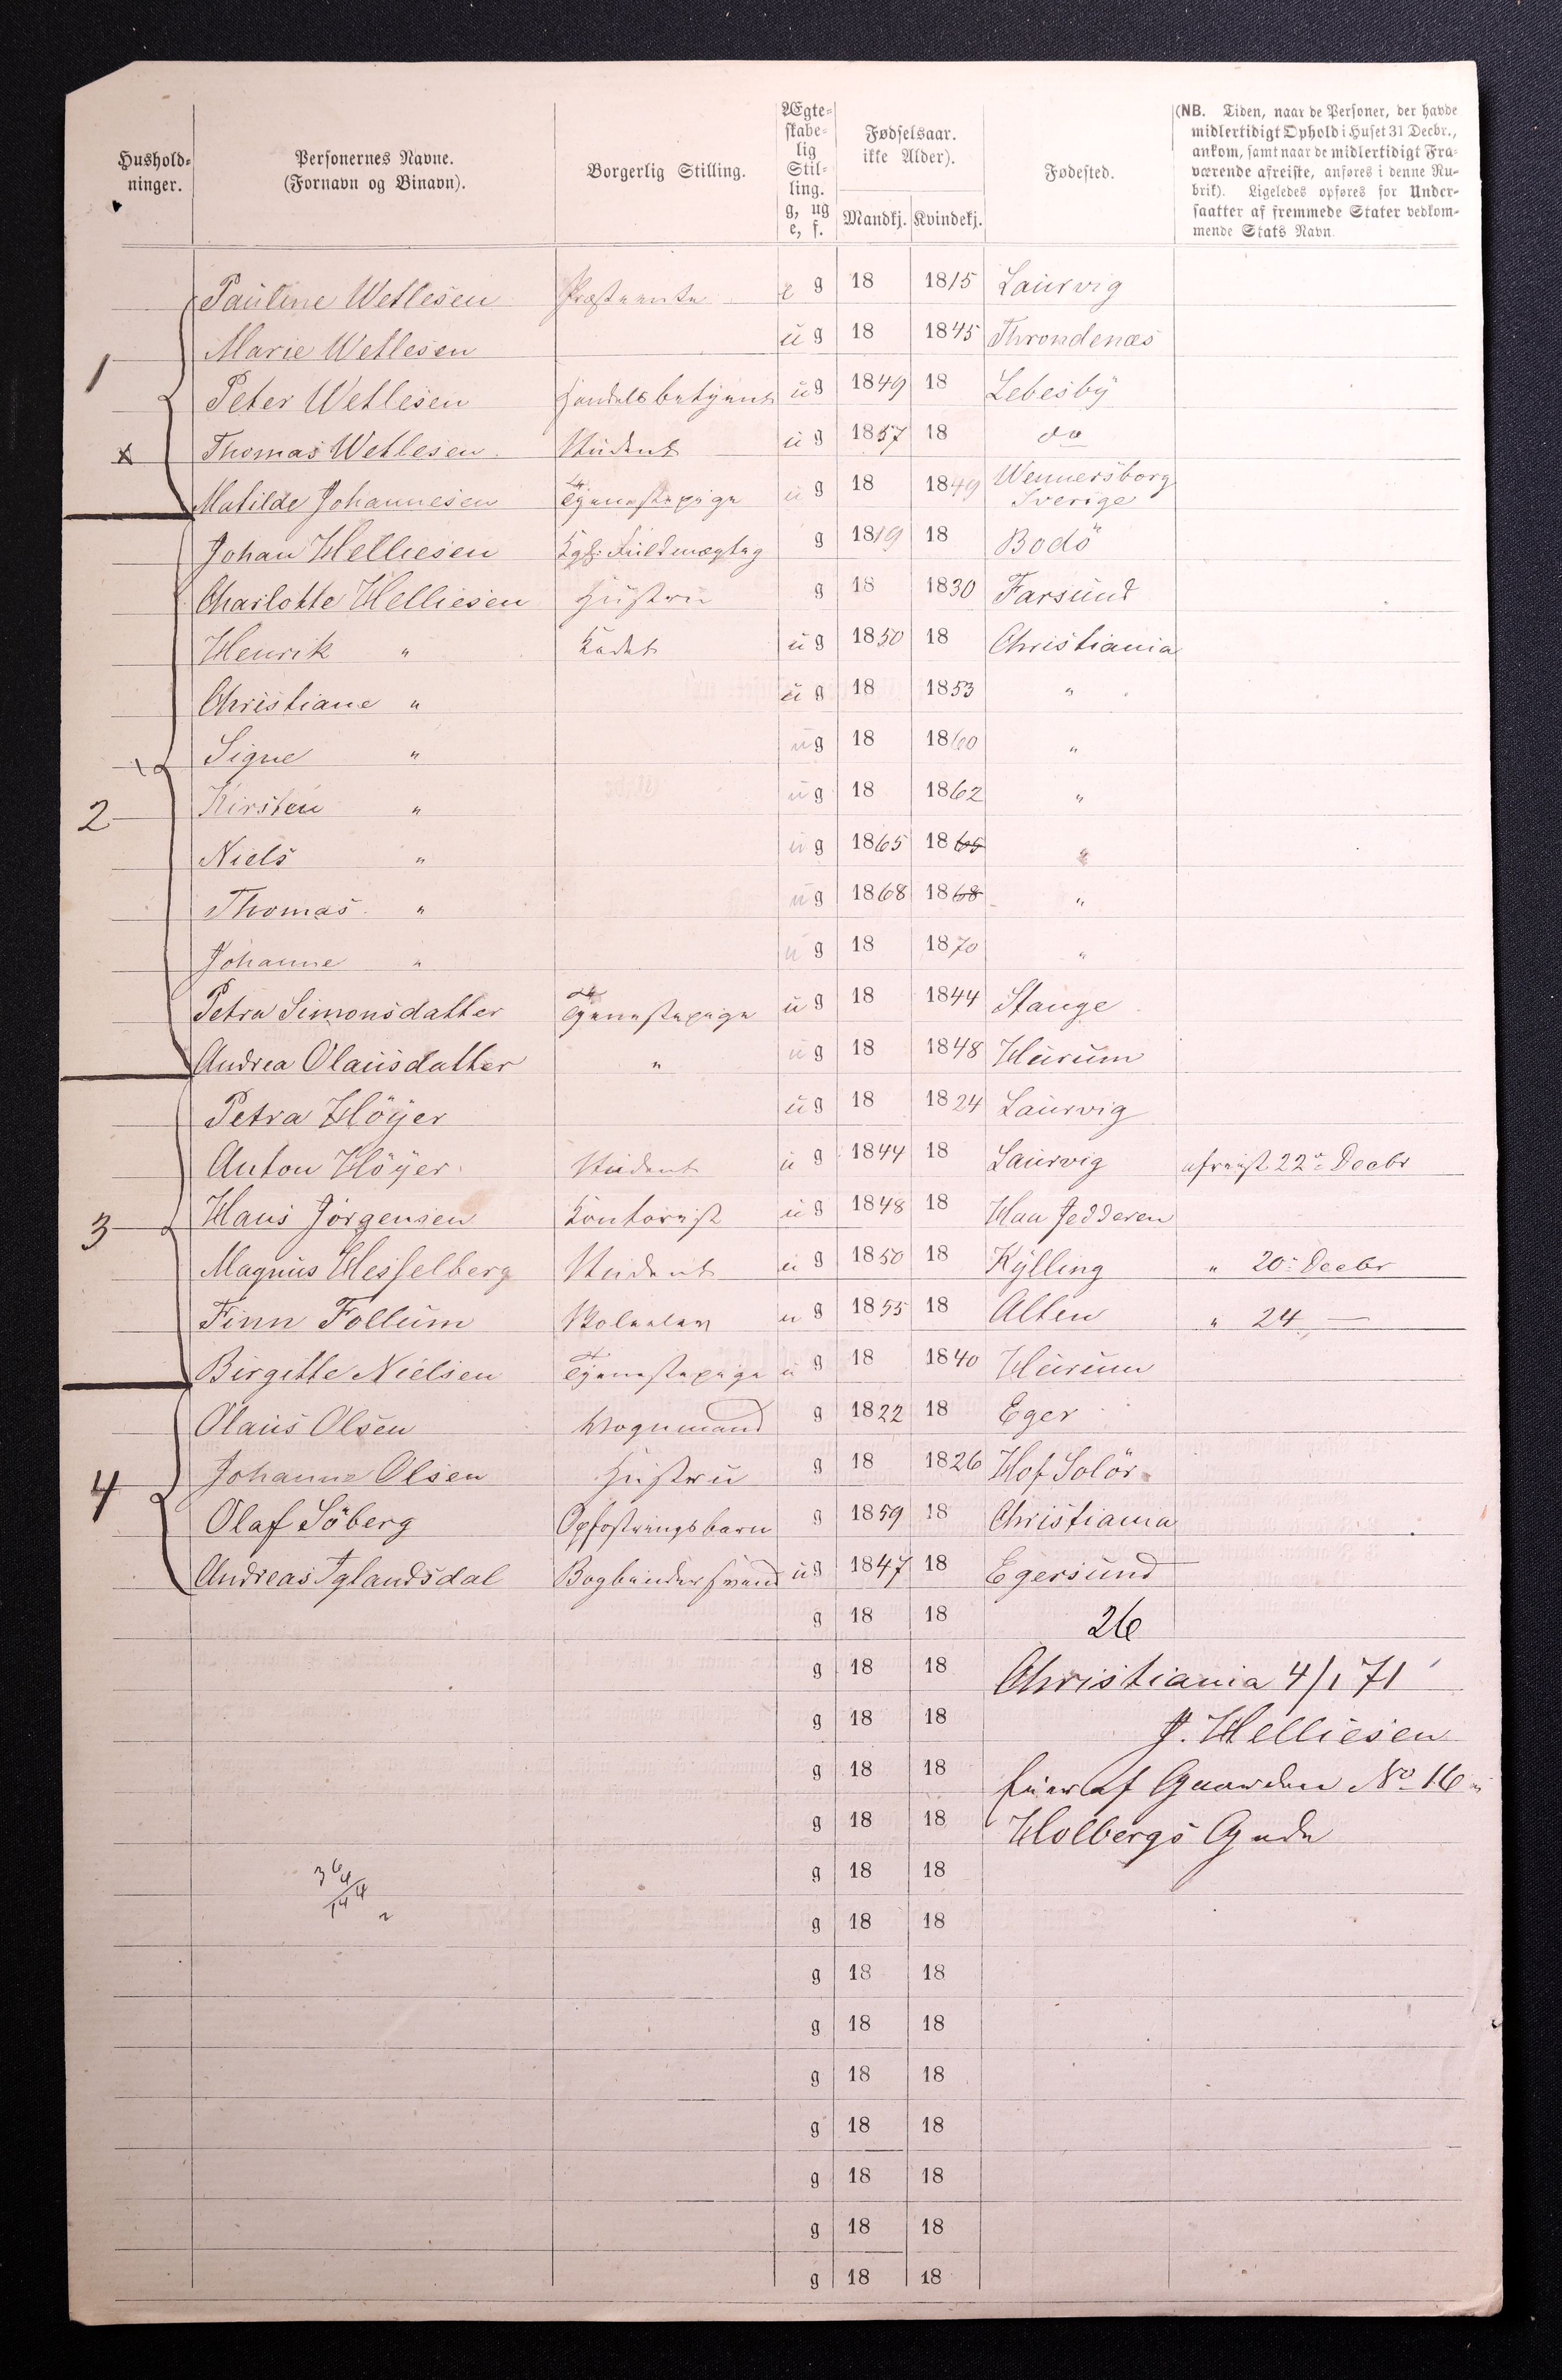 Hushold-
ninger.
Personernes Navne.
(Fornavn og Binavn).
Borgerlig Stilling.
Ægte-
skabe-
lig
Stil-
ling.
g, ug
e, f.
Fødselsaar.
ikke Alder).
Mandkj. Kvindekj.
Fødested.
(NB. Tiden, naar de Personer, der havde
midlertidigt Ophold i Huset 31 Decbr.,
ankom, samt naar de midlertidigt Fra-
værende afreiste, anføres i denne Ru-
brik). Ligeledes opføres for Under-
saatter af fremmede Stater vedkom-
mende Stats Navn.
Pauline Wetlesen Præsteenke e g 18 1815 Laurvig
1 Marie Wetlesen u g 18 1845 Throndenæs
Peter Wetlesen Handelsbetjent u g 1849 18 Lebesby
x Thomas Wetlesen Student u g 1857 18 do
Matilde Johannesen Tjenestepige u g 18 1849 Wennersborg Sverige
Johan Helliesen Kgl: Fuldmægtig g 1819 18 Bodö
Charlotte Helliesen Hustru g 18 1830 Farsund
Henrik " Kadet u g 1850 18 Christiania
Christiane " u g 18 1853 "
Signe " u g 18 1860 "
2 Kirsten " u g 18 1862 "
Niels " u g 1865 1865 "
Thomas " u g 1868 1868 "
Johanne " u g 18 1870 "
Petra Simonsdatter Tjenestepige u g 18 1844 Stange
Andrea Olausdatter " u g 18 1848 Hurum
Petra Höyer u g 18 1824 Laurvig
Anton Höyer Student u g 1844 18 Laurvig afreist 22de Decbr
3 Hans Jörgensen Kontorist u g 1848 18 Haa Jedderen
Magnus Hesselberg Student u g 1850 18 Kylling " 20de Decbr
Finn Follum Skoleelev u g 1855 18 Alten " 24 —
Birgitte Nielsen Tjenestepige u g 18 1840 Hurum
Olaus Olsen Vognmand g 1822 18 Eger
4 Johanne Olsen Hustru g 18 1826 Hof Solör
Olaf Söberg Opfostringsbarn g 1859 18 Christiania
Andreas Iglandsdal Bogbindersvend u g 1847 18 Egersund
g 18 18 26
g 18 18 Christiania 4/1 71
g 18 18 J. Helliesen
g 18 18 Eier af Gaarden No 16 i
g 18 18 Holbergs Gade
g 18 18
g 18 18
g 18 18
g 18 18
g 18 18
g 18 18
g 18 18
g 18 18
g 18 18